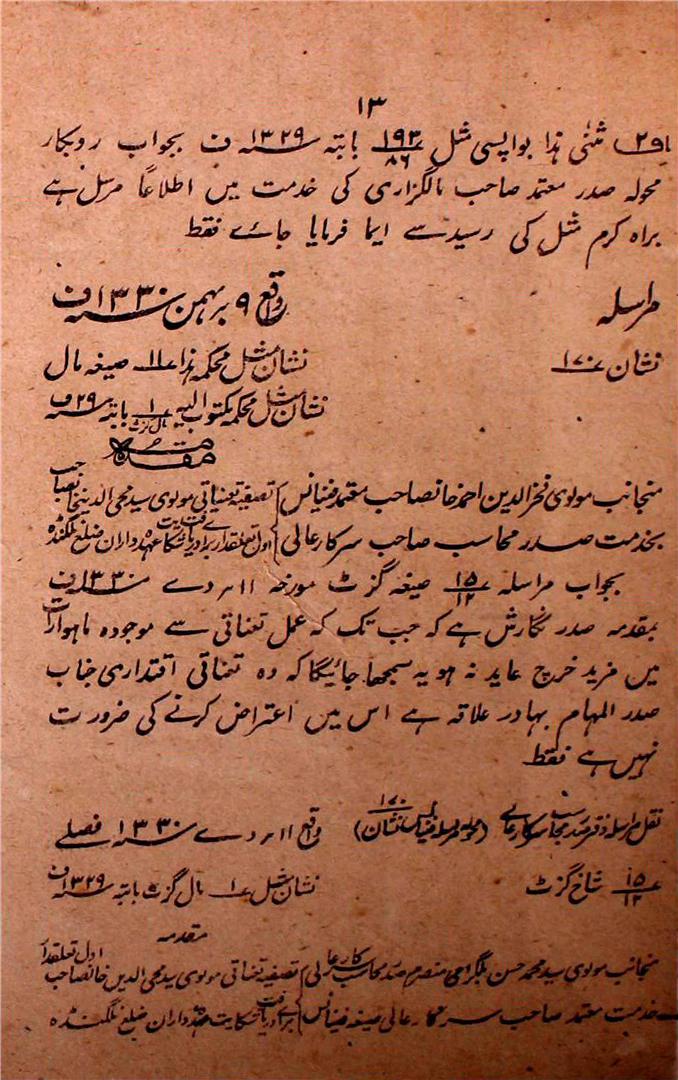 ۱۳
مثنیٰ ہذا بواپسی مثل ۱۹۳/۸۶ بابتہ ۱۳۲۹سنہ ف بجواب روبکار
محولہ صدر معتمد صاحب مالگزاری کی خدمت میں اطلاعاً مرسل ہے
براہ کرم مثل کی رسید سے ایما فرمایا جائے فقط
مراسلہ واقع ۹ بہمن ۱۳۳۰سنہ ف
نشان ۱۷۰ نشان مثل محکمہ ہذا ۱۱ صیغہ مال
نشان مثل محکمہ مکتوب الیہ ۱ مال گزٹ بابتہ ۲۹سنہ ف
مقدمہ
منجانب مولوی فخرالدین احمد خانصاحب معتمد فینانس تصفیہ تعیناتی مولوی سید محی الدین خانصاحب
بخدمت صدر محاسب صاحب سرکار عالی اول تعلقدار برائے دریافت شکایت عہدہ داران ضلع نلگنڈہ
بجواب مراسلہ ۱۵/۱۲ صیغہ گزٹ مورخہ ۱۱ دے ۱۳۳۰سنہ ف
بمقدمہ صدر نگارش ہے کہ جب تک کہ عمل تعیناتی سے موجودہ ماہوارات
میں مزید خرچ عاید نہ ہو یہ سمجھا جائیگا کہ وہ تعیناتی اقتداری جناب
صدر المہام بہادر علاقہ ہے اس میں اعتراض کرنے کی ضرورت
نہیں ہے فقط
نقل مراسلہ دفتر صدر محاسب سرکار عالی (محولہ مراسلہ فینانس نشان ۱۷۰) واقع ۱۱ دے ۱۳۳۰سنہ فصلی
۱۵/۱۲ شاخ گزٹ نشان مثل ۱ مال گزٹ بابتہ ۱۳۲۹سنہ ف
مقدمہ
منجانب مولوی سید محمد حسن بلگرامی منصرم صدر محاسب سرکار عالی تصفیہ تعیناتی مولوی سید محی الدین خانصاحب اول تعلقدار
خدمت معتمد صاحب سرکار عالی صیغہ فینانس برائے دریافت شکایت عہدہ داران ضلع نلگنڈہ